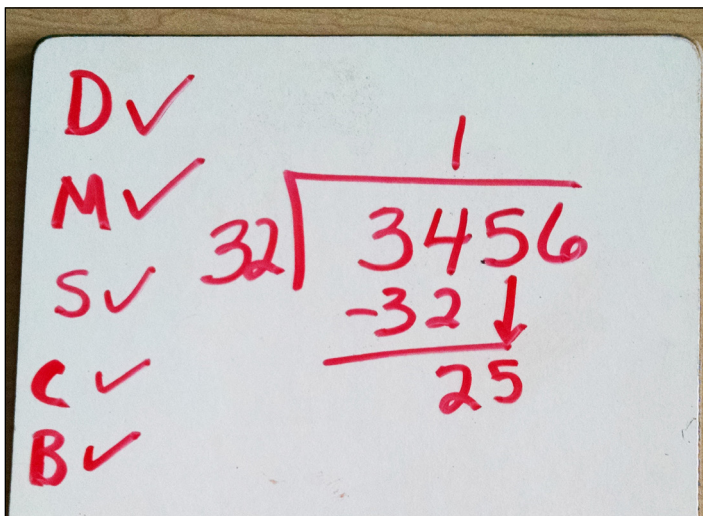 D✓
M✓
S✓
C✓
B✓
1
32 3456
-32
25